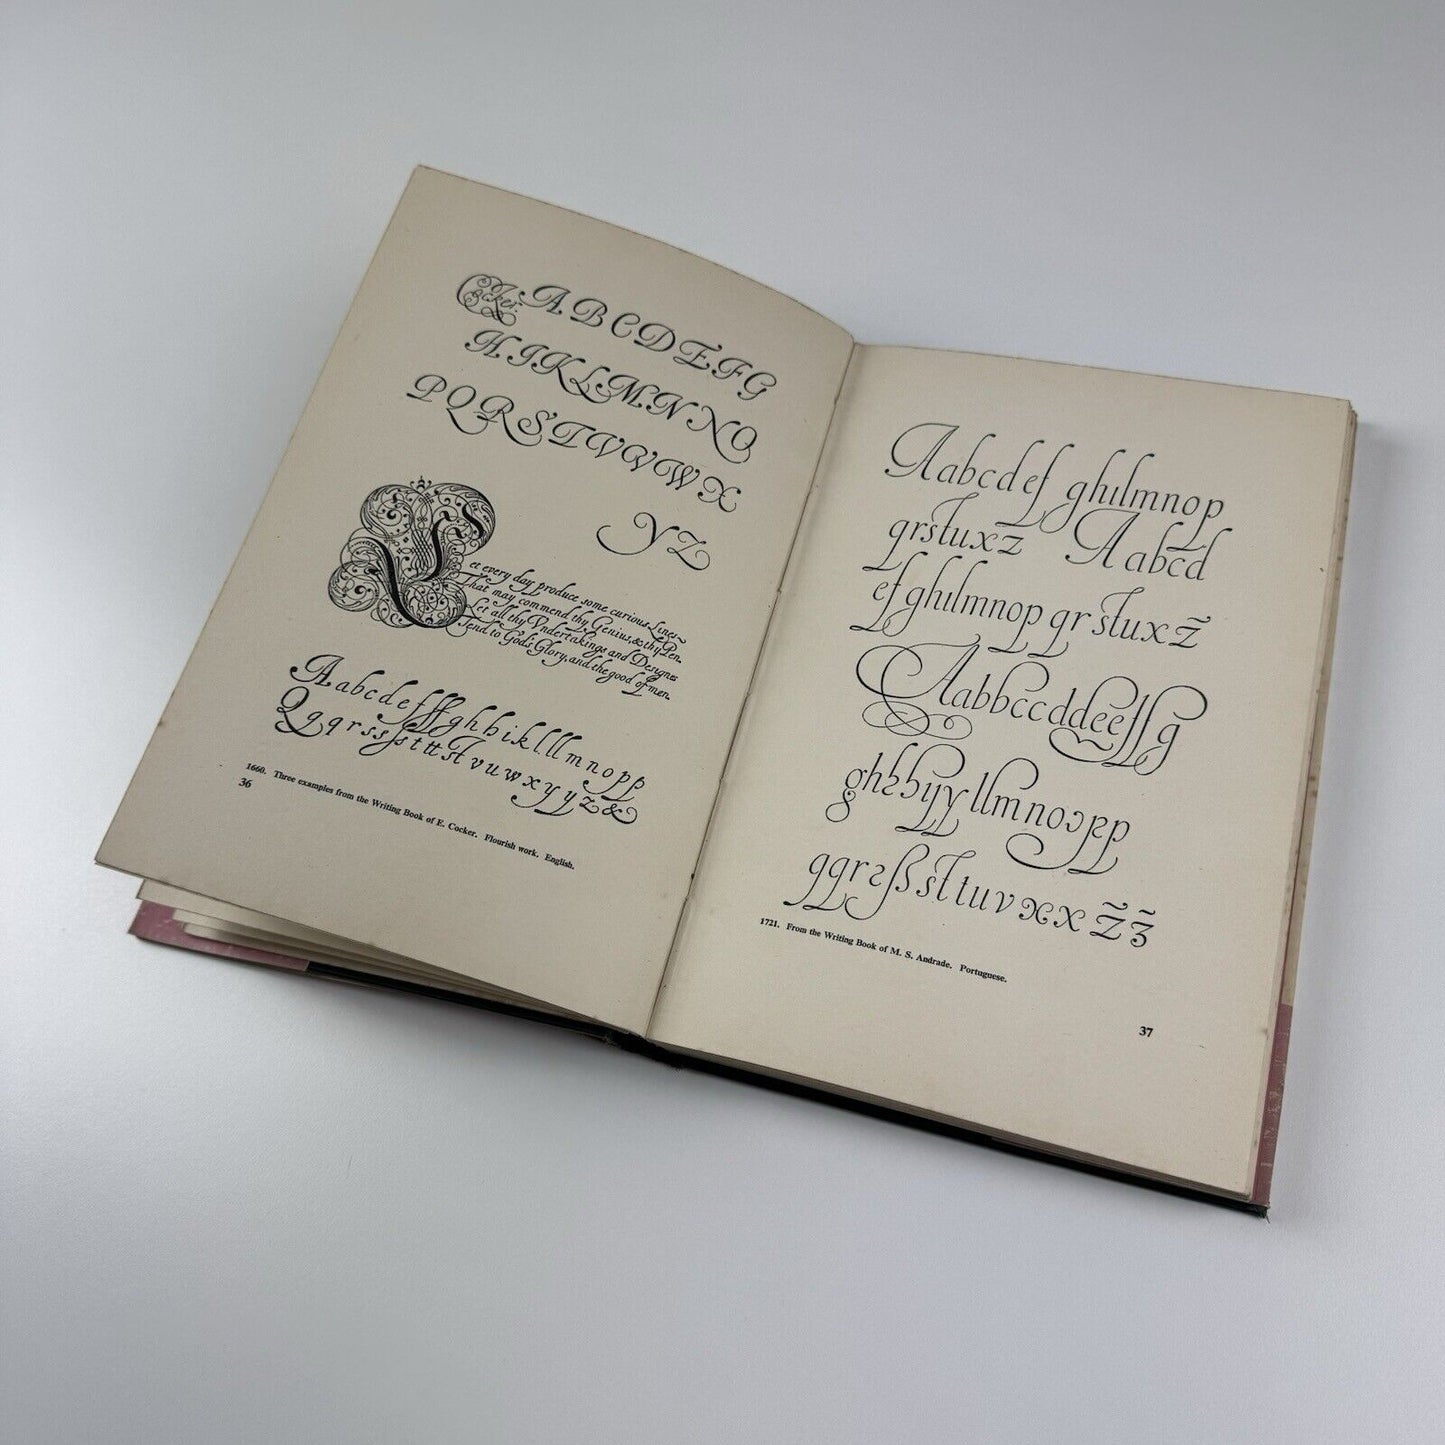 E. Cocker. A B C D E F G
H I K L M N N O
P Q R S T V V W X
Y Z
Let every day produce some curious Lines
That may commend thy Genius, & thy Pen.
Let all thy Vndertakings and Designes
Tend to God's Glory, and the good of men.
A a b c d e f f f g h h i k l l l m n o p p
Q q q r s s ſs t tt st v u w x y y z &
1660. Three examples from the Writing Book of E. Cocker. Flourish work. English.
36
A a b c d e f g h i l m n o p
q r s t u x z A a b c d
e f g h i l m n o p q r s t u x z̃
A a b b c c d d e e f f g
g h
l l m n o
q q r ß st t u v x x z̃ z̃
1721. From the Writing Book of M. S. Andrade. Portuguese.
37